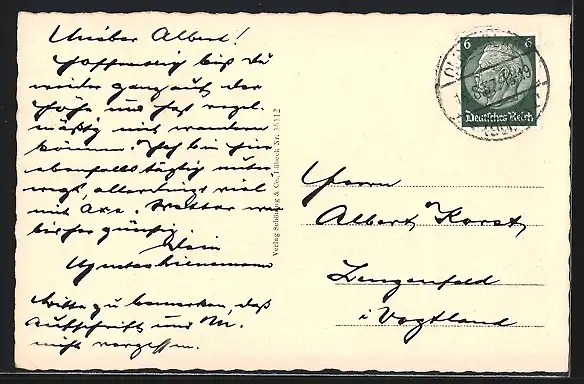 Albert!
Hoffentlich bist du
wieder ganz auf der
Höhe und hast regel-
mäßig mit wandern
können. Ich bin hier
ebenfalls tägtig unter-
wegs, allerdings viel
mit Axe. Wetter war
bisher günstig.
Dein
Bitte zu bemerken, daß
Aufschrift und Nr.
nicht vergessen.
Verlag Schöning & Co., Lübeck Nr. 16112
6 6
Deutsches Reich
Herrn
Albert Korst,
Lengenfeld
i. Vogtland